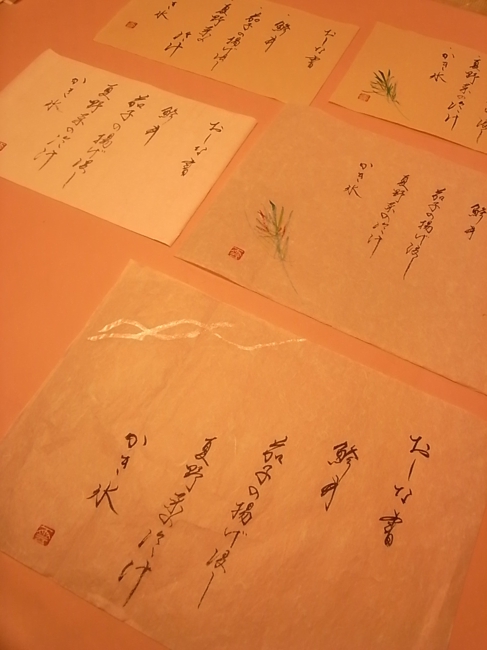 おしな書
鯵丼
茄子の揚げ浸し
夏野菜の冷汁
き氷
夏野菜の冷汁
かき氷
おしな書
鯵丼
茄子の揚げ浸し
夏野菜の冷汁
かき氷
鯵丼
茄子の揚げ浸し
夏野菜の冷汁
かき氷
おしな書
鯵丼
茄子の揚げ浸し
夏野菜の冷汁
かき氷